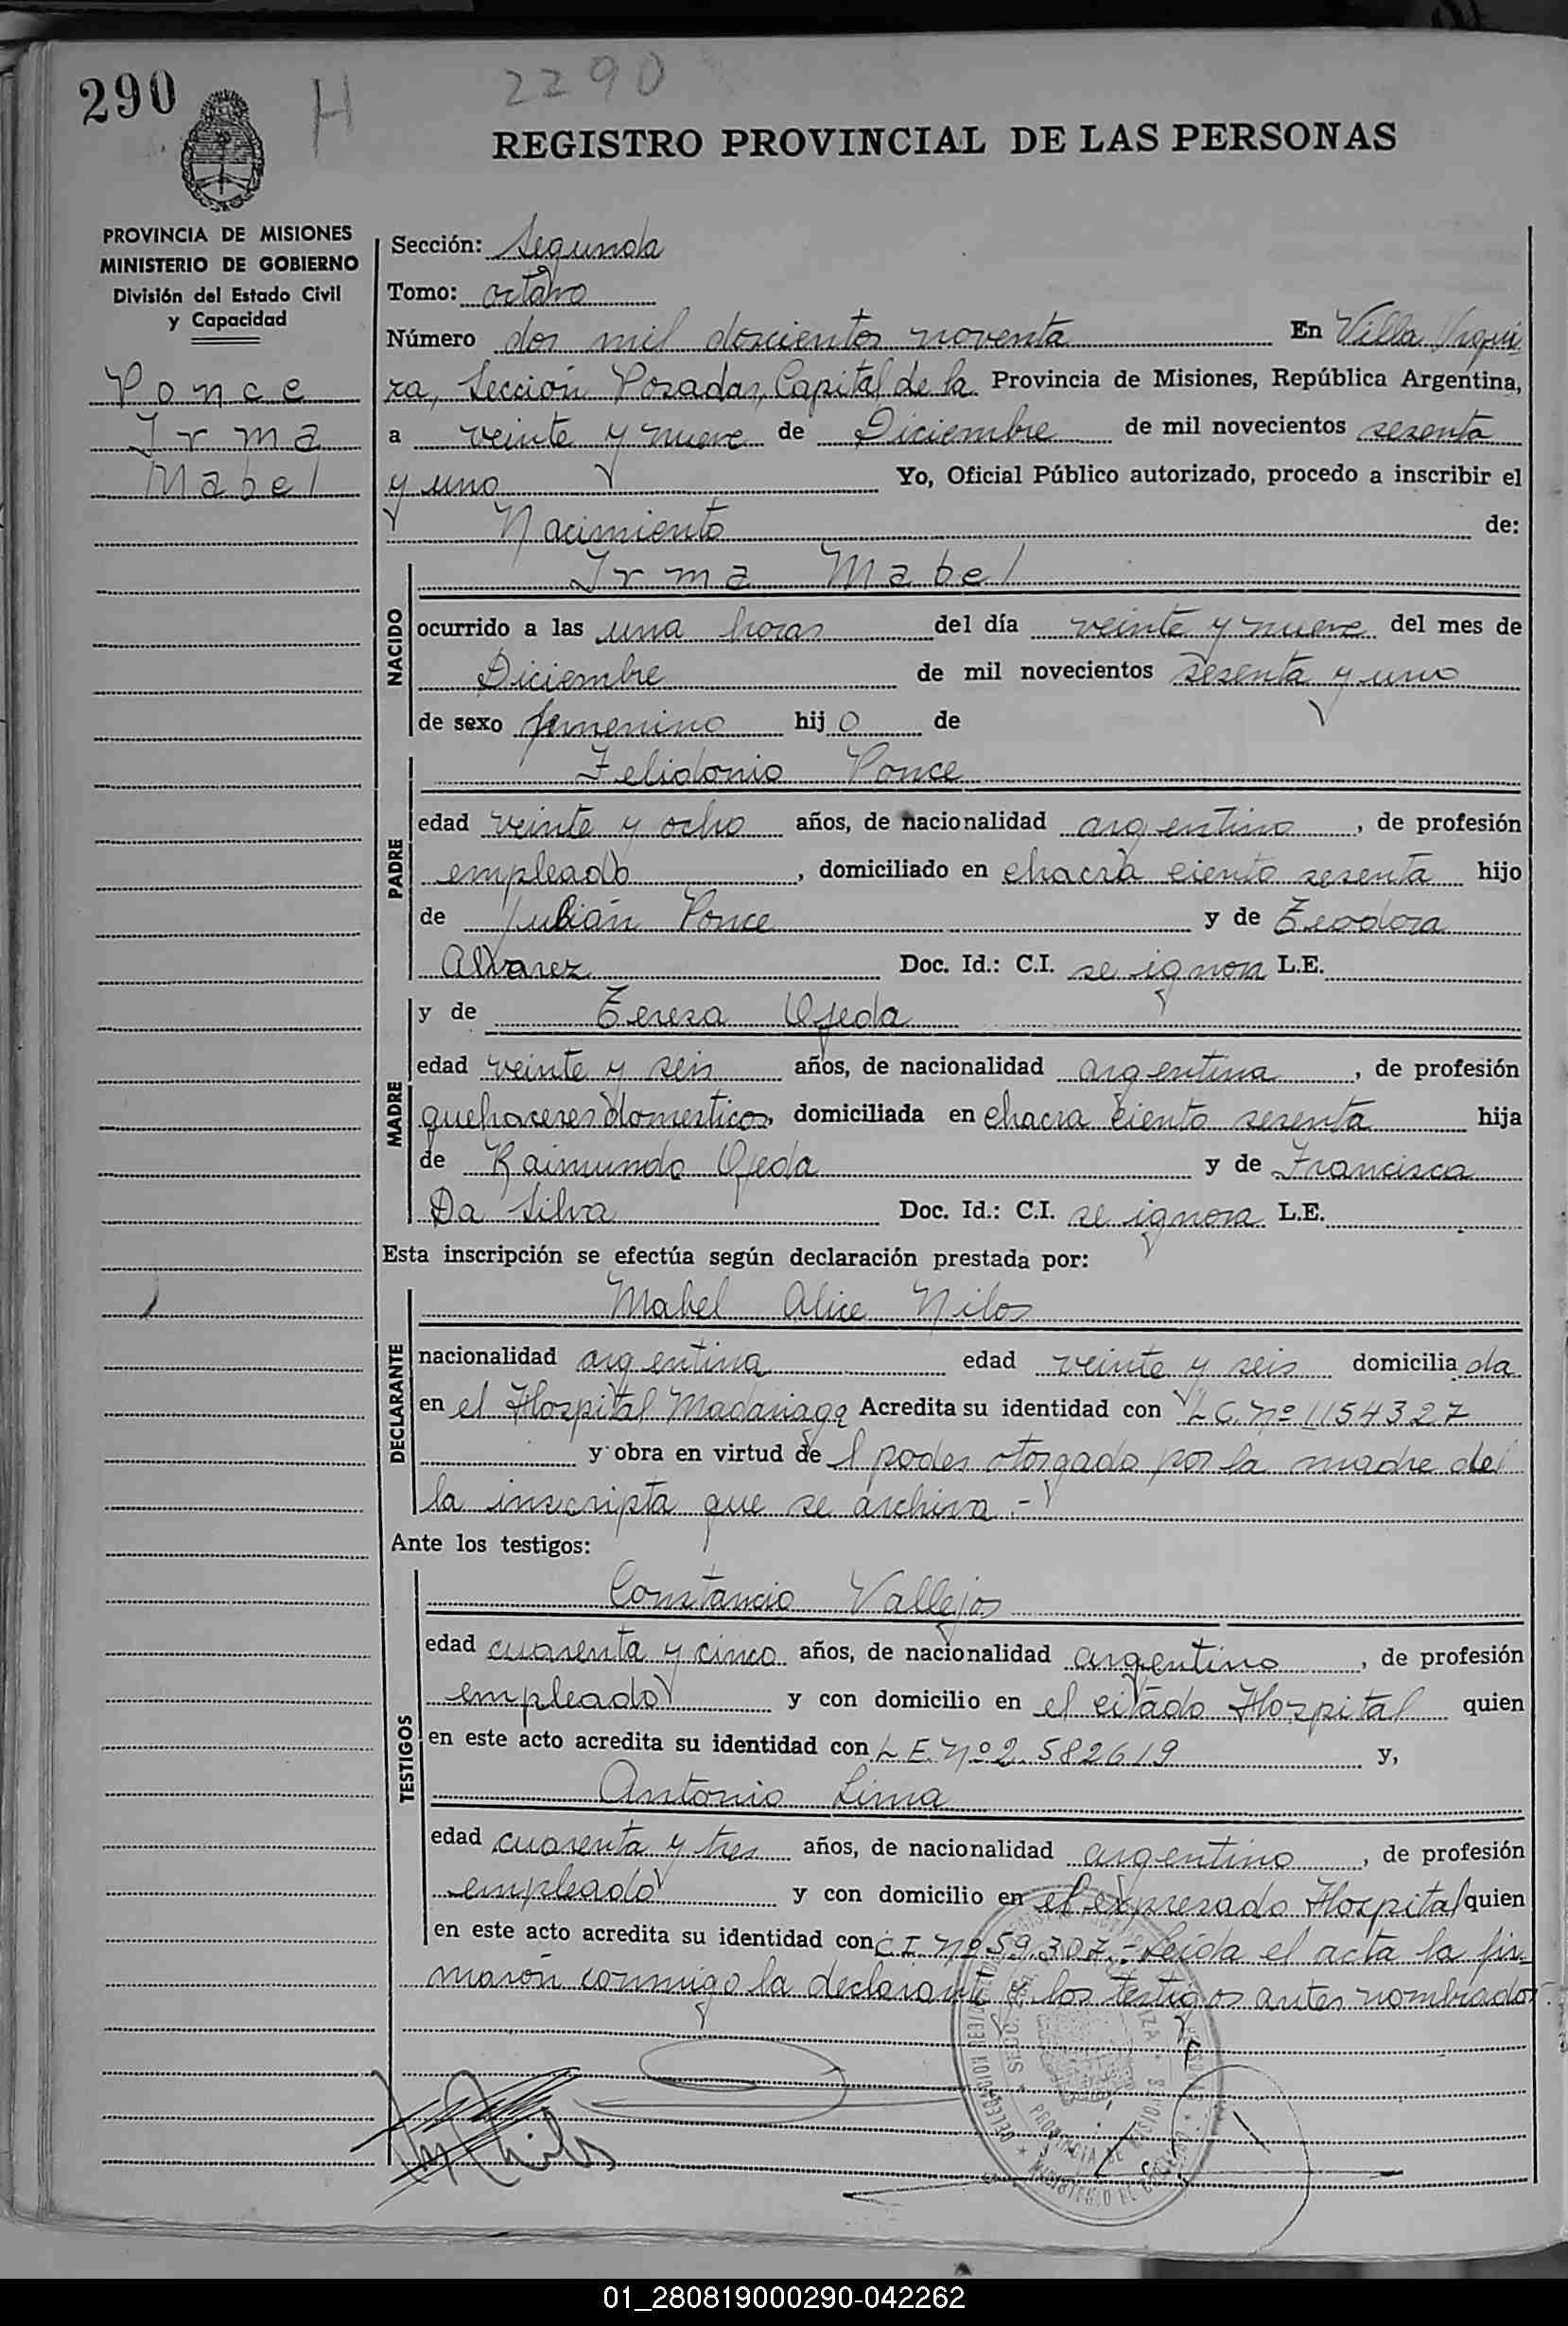 290
H
2290
REGISTRO PROVINCIAL DE LAS PERSONAS
PROVINCIA DE MISIONES
MINISTERIO DE GOBIERNO
División del Estado Civil
y Capacidad
Ponce
Irma
Mabel
Sección: Segunda
Tomo: octavo
Número dos mil doscientos noventa En Villa Urqui
za, Sección Posadas, Capital de la Provincia de Misiones, República Argentina,
a veinte y nueve de Diciembre de mil novecientos sesenta
y uno Yo, Oficial Público autorizado, procedo a inscribir el
Nacimiento de:
NACIDO
Irma Mabel
ocurrido a las una horas del día veinte y nueve del mes de
Diciembre de mil novecientos sesenta y uno
de sexo femenino hij o de
PADRE
Felidonio Ponce
edad veinte y ocho años, de nacionalidad argentino, de profesión
empleado, domiciliado en chacra ciento sesenta hijo
de Julián Ponce y de Teodora
Alvarez Doc. Id.: C.I. se ignora L.E.
MADRE
y de Teresa Ojeda
edad veinte y seis años, de nacionalidad argentina, de profesión
quehaceres domesticos, domiciliada en chacra ciento sesenta hija
de Raimundo Ojeda y de Francisca
Da Silva Doc. Id.: C.I. se ignora L.E.
Esta inscripción se efectúa según declaración prestada por:
DECLARANTE
Mabel Alice Nilos
nacionalidad argentina edad veinte y seis domicilia da
en el Hospital Madariaga Acredita su identidad con L C. Nº 1154327
y obra en virtud de l poder otorgado por la madre de
la inscripta que se archiva.-
Ante los testigos:
TESTIGOS
Constancio Vallejos
edad cuarenta y cinco años, de nacionalidad argentino, de profesión
empleado y con domicilio en el citado Hospital quien
en este acto acredita su identidad con L E. Nº 2.582619 y,
Antonio Lima
edad cuarenta y tres años, de nacionalidad argentino, de profesión
empleado y con domicilio en el expresado Hospital quien
en este acto acredita su identidad con C I. Nº 59.307.- Leída el acta la fir-
maron conmigo la declarante y los testigos antes nombrados.-
01_280819000290-042262